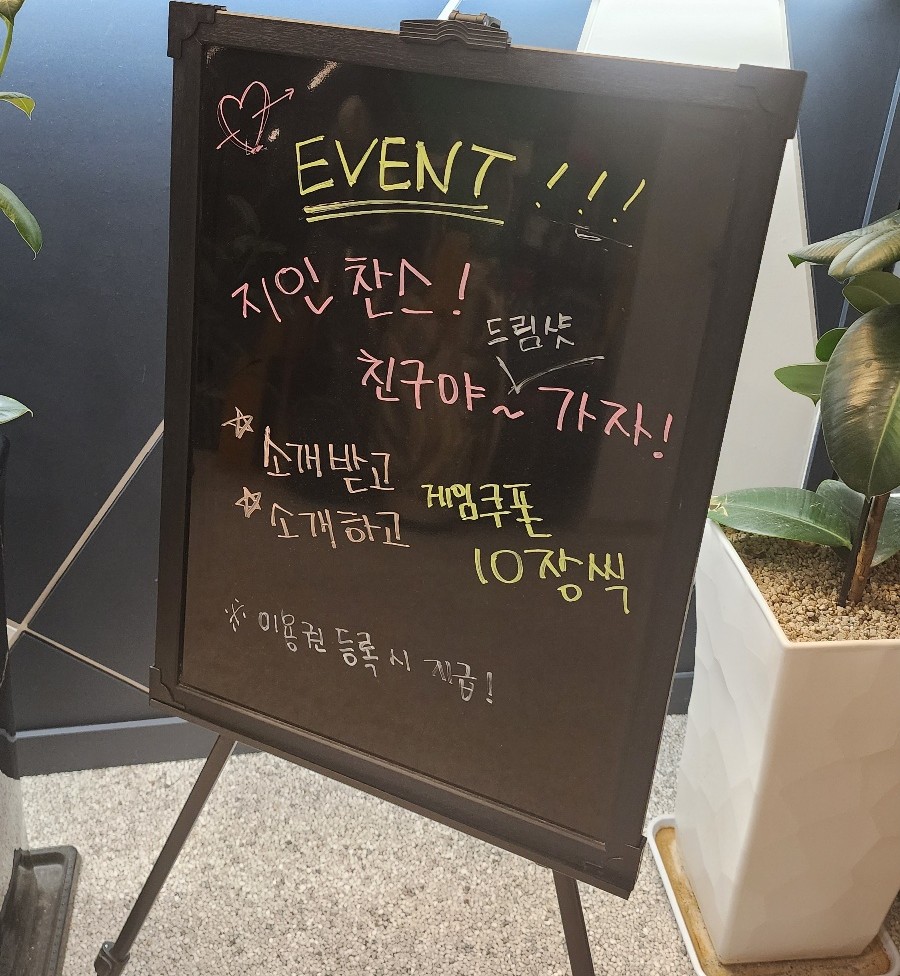 EVENT!!!
지인 찬스!
드림샷
친구야~ 가자!
☆ 소개받고
☆ 소개하고
게임쿠폰
10장씩
※ 이용권 등록 시 지급!